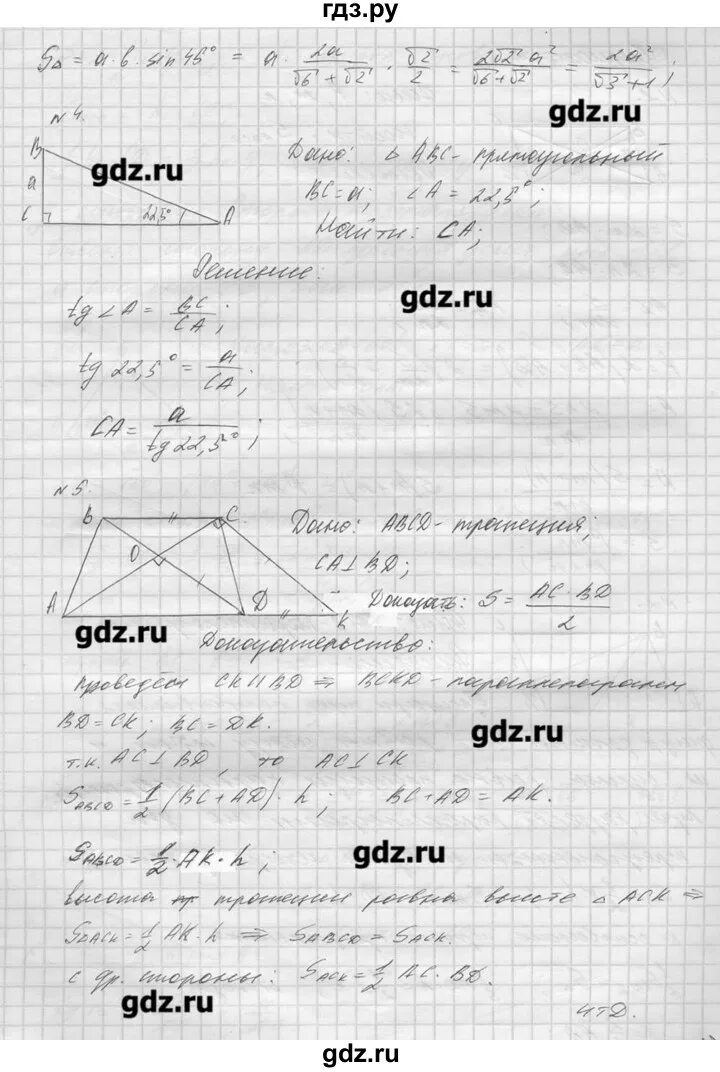 гдз.ру
S△ = a·b·sin 45° = a · 2a/(√6 + √2) · √2/2 = 2√2 a²/(√6+√2) = 2a²/(√3+1) ;
gdz.ru
№ 4.
B
a
C
22,5°
A
gdz.ru
Дано: △ ABC - прямоугольный
BC = a; ∠A = 22,5°;
Найти: CA;
Решение:
gdz.ru
tg ∠A = BC/CA ;
tg 22,5° = a/CA ;
CA = a/tg 22,5° ;
№ 5.
B
C
O
A
D
K
gdz.ru
Дано: ABCD - трапеция;
CA ⊥ BD;
Доказать: S = AC·BD/2
Доказательство:
проведём CK || BD ⇒ BCKD - параллелограмм
BD = CK; BC = DK.
gdz.ru
т.к. AC ⊥ BD, то AC ⊥ CK
S ABCD = 1/2 (BC + AD) · h ; BC + AD = AK.
S ABCD = 1/2 · AK · h ;
gdz.ru
высота трапеции равна высоте △ ACK ⇒
S△ACK = 1/2 AK · h ⇒ S ABCD = S ACK.
с др. стороны: S ACK = 1/2 AC · BD.
gdz.ru
чтд.
gdz.ru